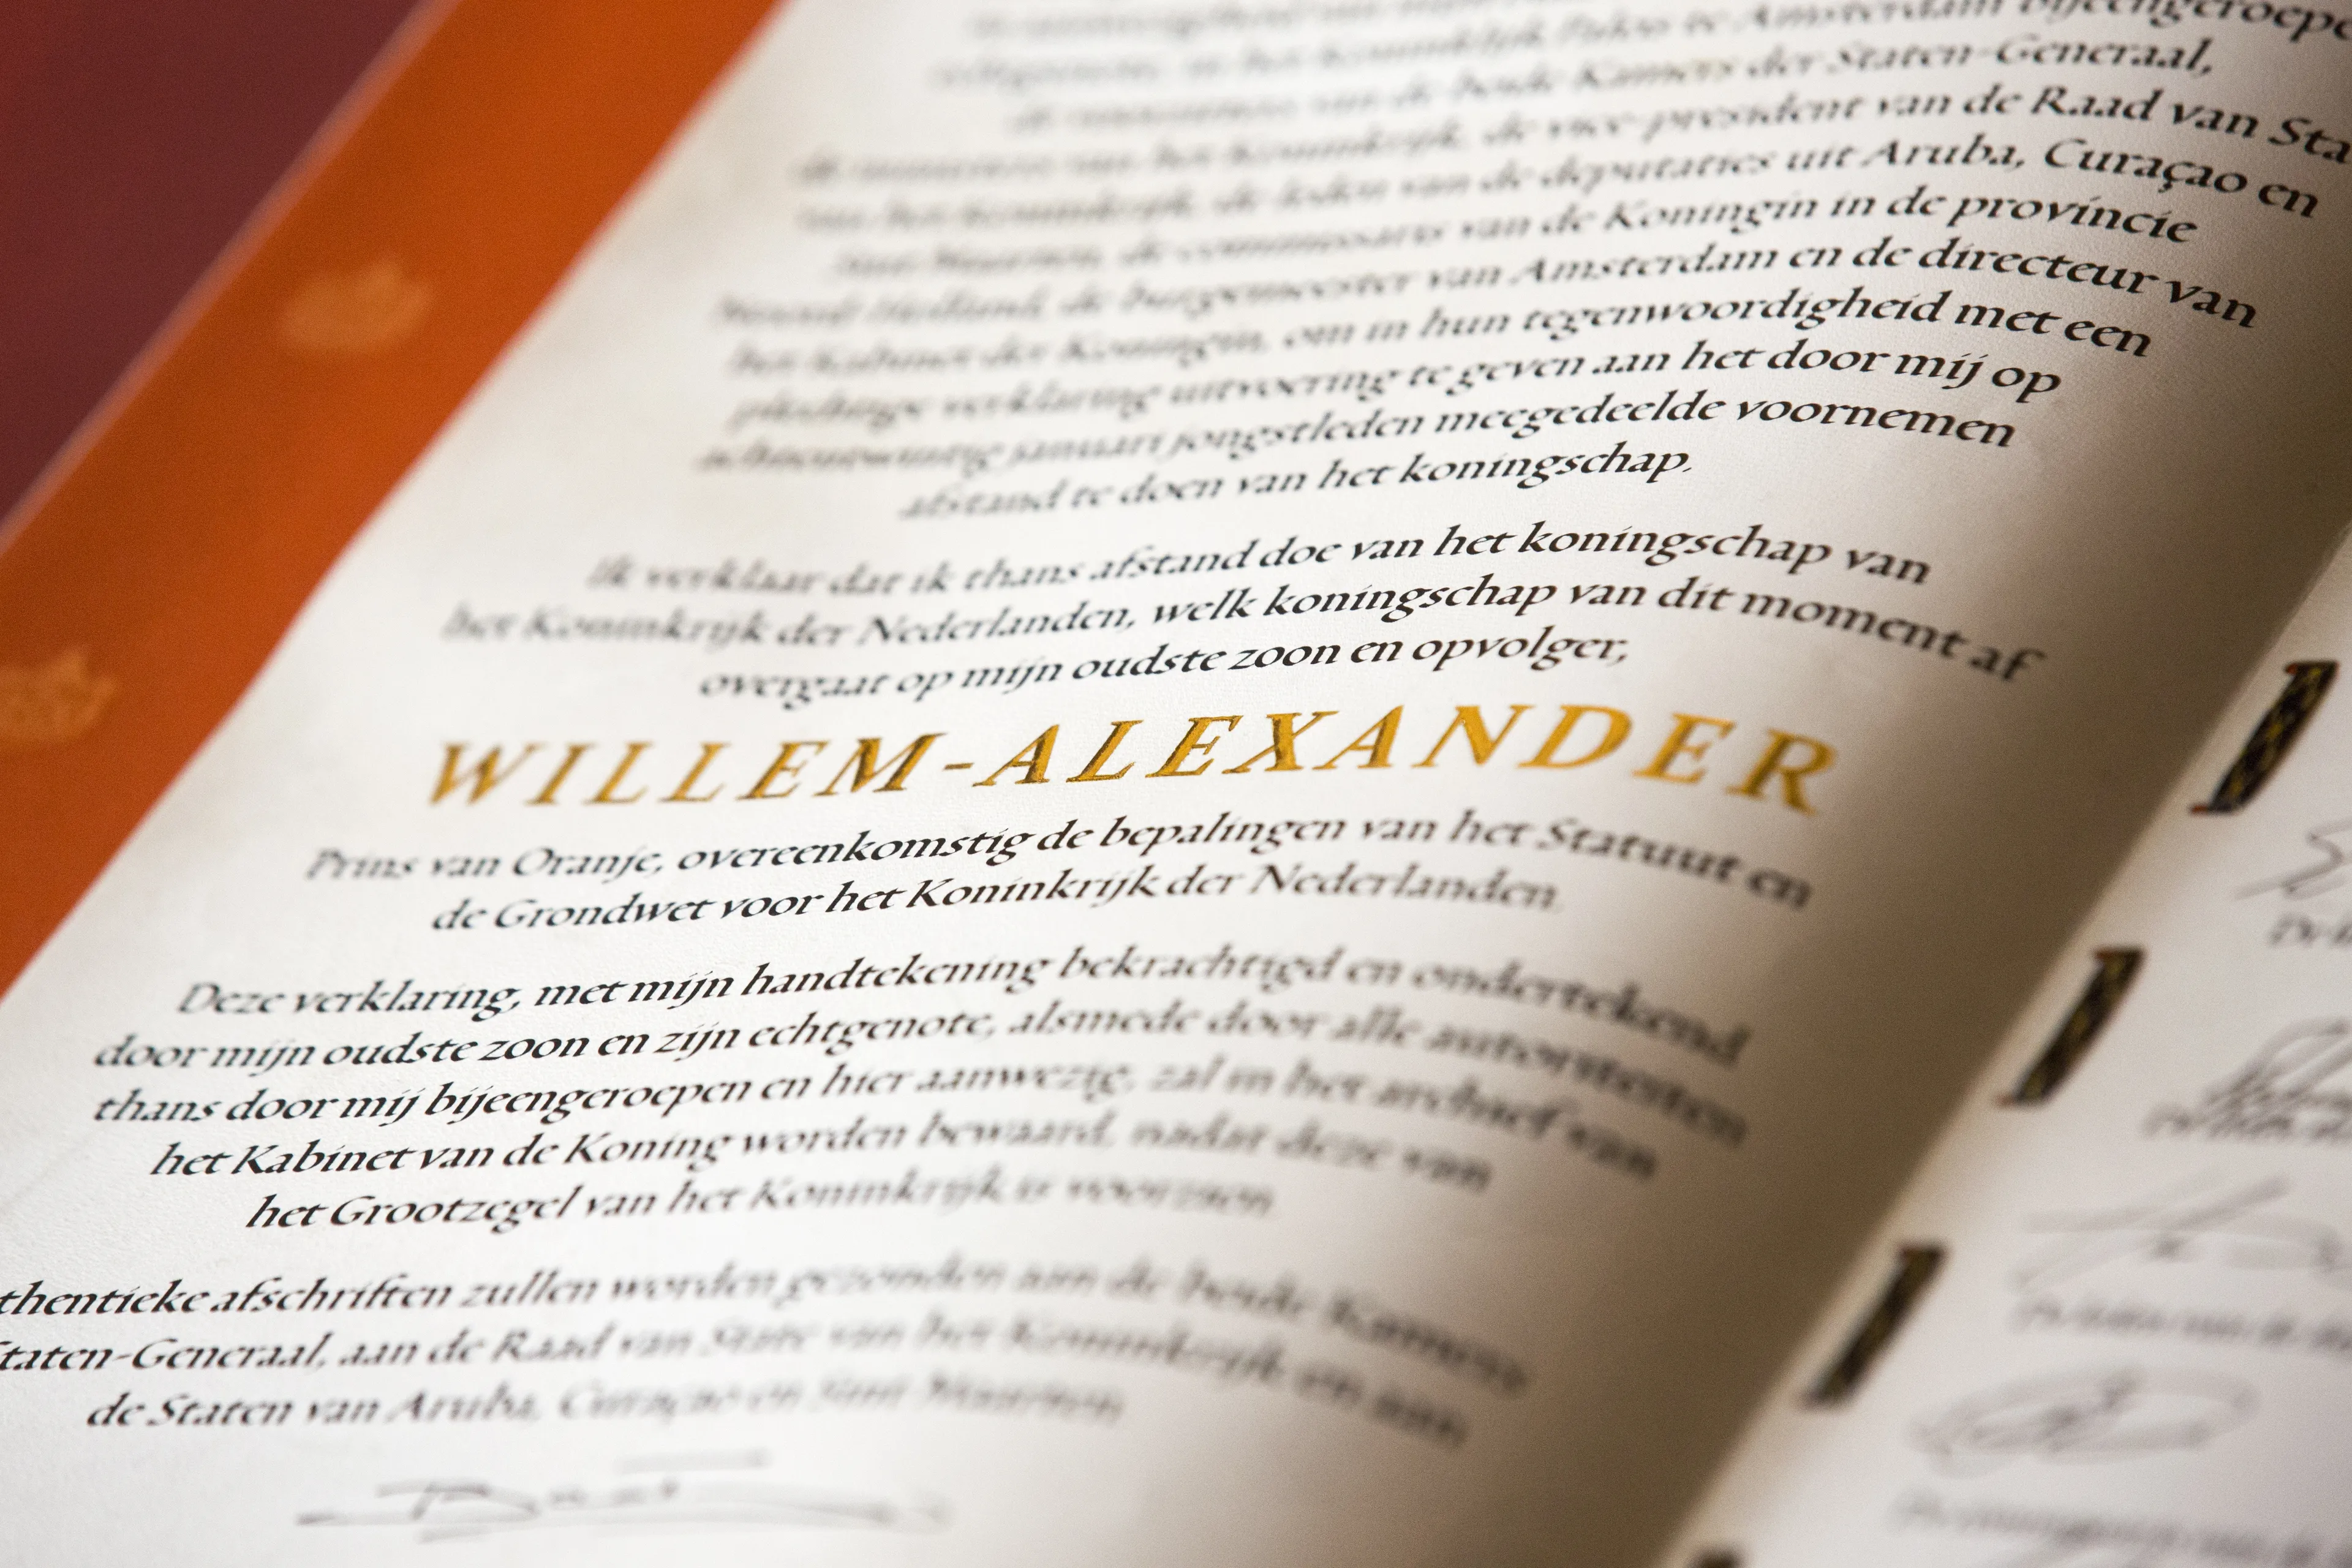 Amsterdam bijeengeroepe
de beide Kamers der Staten-Generaal,
het Koninkrijk, de vice-president van de Raad van Sta
de leden van de deputaties uit Aruba, Curaçao en
de commissaris van de Koningin in de provincie
de burgemeester van Amsterdam en de directeur van
het Kabinet der Koningin, om in hun tegenwoordigheid met een
plechtige verklaring uitvoering te geven aan het door mij op
januari jongstleden meegedeelde voornemen
afstand te doen van het koningschap.
Ik verklaar dat ik thans afstand doe van het koningschap van
het Koninkrijk der Nederlanden, welk koningschap van dit moment af
overgaat op mijn oudste zoon en opvolger,
WILLEM-ALEXANDER
Prins van Oranje, overeenkomstig de bepalingen van het Statuut en
de Grondwet voor het Koninkrijk der Nederlanden.
Deze verklaring, met mijn handtekening bekrachtigd en ondertekend
door mijn oudste zoon en zijn echtgenote, alsmede door alle autoriteiten
thans door mij bijeengeroepen en hier aanwezig, zal in het archief van
het Kabinet van de Koning worden bewaard, nadat deze van
het Grootzegel van het Koninkrijk is voorzien.
thentieke afschriften zullen worden gezonden aan de beide Kamers
taten-Generaal, aan de Raad van State van het Koninkrijk en aan
de Staten van Aruba, Curaçao en Sint Maarten